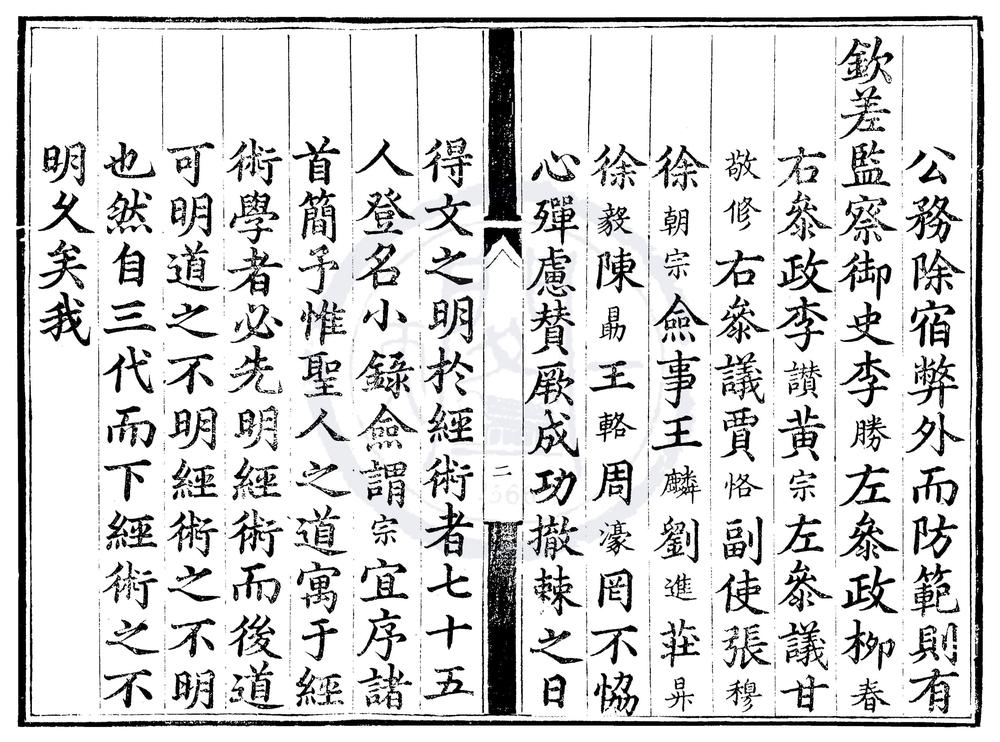 公務除宿弊外而防範則有
欽差監察御史李勝左叅政柳春
右叅政李讃黄宗左叅議甘
敬修右叅議賈恪副使張穆
徐朝宗僉事王麟劉進莊昇
徐毅陳勗王輅周濠罔不恊
心殫慮賛厥成功撤棘之日
二
得文之明於經術者七十五
人登名小錄僉謂宗宜序諸
首簡予惟聖人之道寓于經
術學者必先明經術而後道
可明道之不明經術之不明
也然自三代而下經術之不
明久矣我